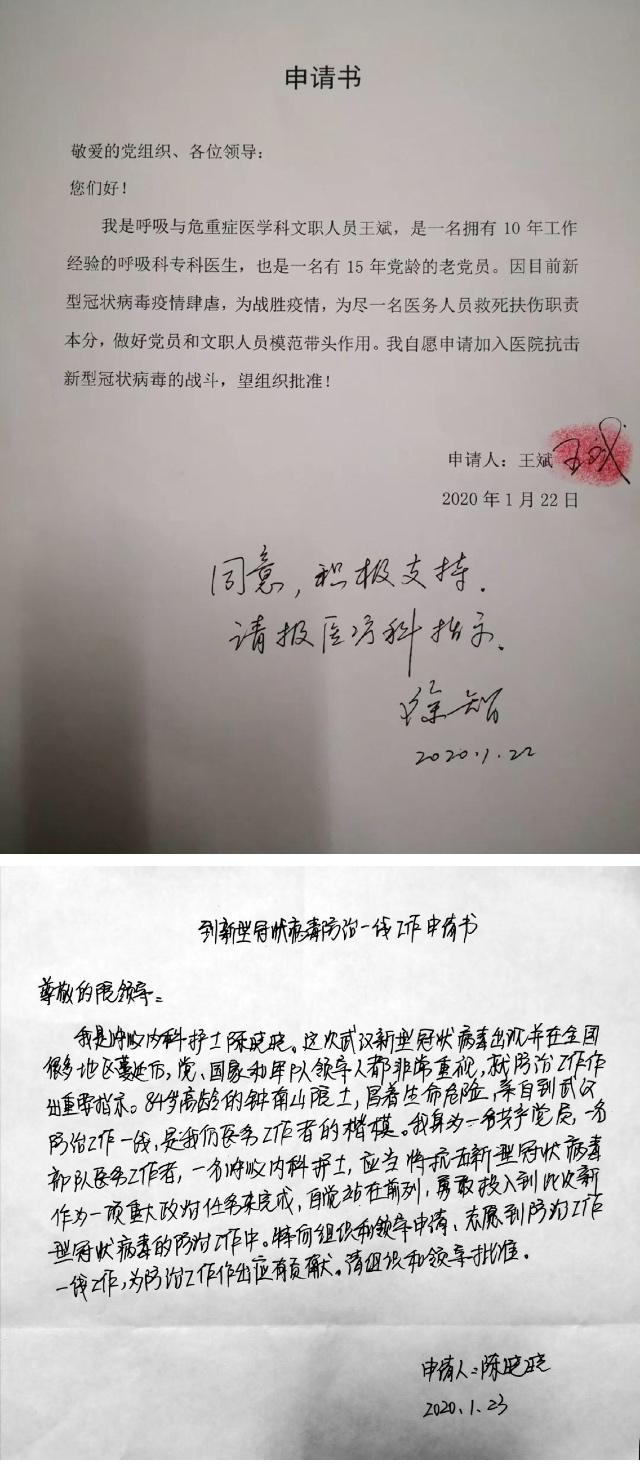 申请书
敬爱的党组织、各位领导：
您们好！
我是呼吸与危重症医学科文职人员王斌，是一名拥有 10 年工作
经验的呼吸科专科医生，也是一名有 15 年党龄的老党员。因目前新
型冠状病毒疫情肆虐，为战胜疫情，为尽一名医务人员救死扶伤职责
本分，做好党员和文职人员模范带头作用。我自愿申请加入医院抗击
新型冠状病毒的战斗，望组织批准！
申请人：王斌 王斌
2020 年 1 月 22 日
同意，积极支持.
请报医疗科指示.
徐智
2020.1.22
到新型冠状病毒防治一线工作申请书
尊敬的院领导：
我是呼吸内科护士陈晓晓。这次武汉新型冠状病毒出现并在全国
很多地区蔓延后，党、国家和军队领导人都非常重视，就防治工作作
出重要指示。84岁高龄的钟南山院士，冒着生命危险，亲自到武汉
防治工作一线，是我们医务工作者的楷模。我身为一名共产党员，一名
部队医务工作者，一名呼吸内科护士，应当将抗击新型冠状病毒
作为一项重大政治任务来完成，自觉站在前列，勇敢投入到此次新
型冠状病毒的防治工作中。特向组织和领导申请，志愿到防治工作
一线工作，为防治工作作出应有贡献。请组织和领导批准。
申请人：陈晓晓
2020.1.23